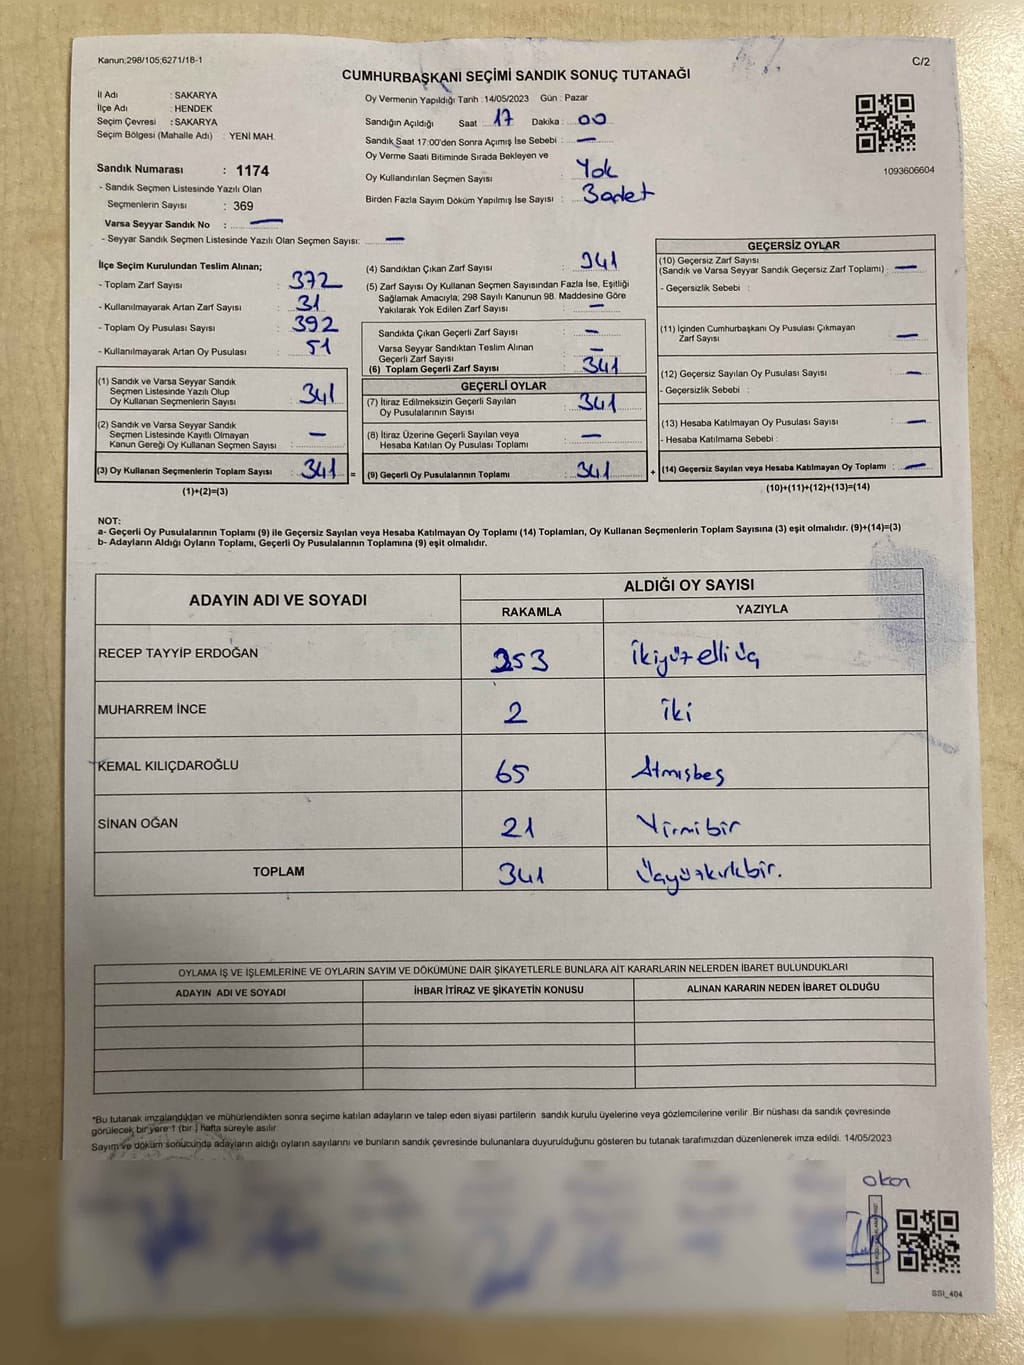 Kanun;298/105;6271/18-1
C/2
CUMHURBAŞKANI SEÇİMİ SANDIK SONUÇ TUTANAĞI
İl Adı : SAKARYA
İlçe Adı : HENDEK
Seçim Çevresi : SAKARYA
Seçim Bölgesi (Mahalle Adı) : YENİ MAH.
Oy Vermenin Yapıldığı Tarih :14/05/2023 Gün : Pazar
Sandığın Açıldığı Saat : 17 Dakika : 00
Sandık Saat 17:00'den Sonra Açımış İse Sebebi : —
Oy Verme Saati Bitiminde Sırada Bekleyen ve
Oy Kullandırılan Seçmen Sayısı : Yok
Birden Fazla Sayım Döküm Yapılmış İse Sayısı : 3 adet
1093606604
Sandık Numarası : 1174
- Sandık Seçmen Listesinde Yazılı Olan
Seçmenlerin Sayısı : 369
Varsa Seyyar Sandık No : —
- Seyyar Sandık Seçmen Listesinde Yazılı Olan Seçmen Sayısı: —
İlçe Seçim Kurulundan Teslim Alınan;
- Toplam Zarf Sayısı : 372
- Kullanılmayarak Artan Zarf Sayısı : 31
- Toplam Oy Pusulası Sayısı : 392
- Kullanılmayarak Artan Oy Pusulası : 51
(1) Sandık ve Varsa Seyyar Sandık
Seçmen Listesinde Yazılı Olup
Oy Kullanan Seçmenlerin Sayısı : 341
(2) Sandık ve Varsa Seyyar Sandık
Seçmen Listesinde Kayıtlı Olmayan
Kanun Gereği Oy Kullanan Seçmen Sayısı : —
(3) Oy Kullanan Seçmenlerin Toplam Sayısı : 341 =
(1)+(2)=(3)
(4) Sandıktan Çıkan Zarf Sayısı : 341
(5) Zarf Sayısı Oy Kullanan Seçmen Sayısından Fazla İse, Eşitliği
Sağlamak Amacıyla; 298 Sayılı Kanunun 98. Maddesine Göre
Yakılarak Yok Edilen Zarf Sayısı : —
Sandıkta Çıkan Geçerli Zarf Sayısı : —
Varsa Seyyar Sandıktan Teslim Alınan
Geçerli Zarf Sayısı : —
(6) Toplam Geçerli Zarf Sayısı : 341
GEÇERLİ OYLAR
(7) İtiraz Edilmeksizin Geçerli Sayılan
Oy Pusulalarının Sayısı : 341
(8) İtiraz Üzerine Geçerli Sayılan veya
Hesaba Katılan Oy Pusulası Toplamı : —
(9) Geçerli Oy Pusulalarının Toplamı : 341 +
GEÇERSİZ OYLAR
(10) Geçersiz Zarf Sayısı
(Sandık ve Varsa Seyyar Sandık Geçersiz Zarf Toplamı) : —
- Geçersizlik Sebebi :
(11) İçinden Cumhurbaşkanı Oy Pusulası Çıkmayan
Zarf Sayısı : —
(12) Geçersiz Sayılan Oy Pusulası Sayısı : —
- Geçersizlik Sebebi :
(13) Hesaba Katılmayan Oy Pusulası Sayısı : —
- Hesaba Katılmama Sebebi :
(14) Geçersiz Sayılan veya Hesaba Katılmayan Oy Toplamı : —
(10)+(11)+(12)+(13)=(14)
NOT:
a- Geçerli Oy Pusulalarının Toplamı (9) ile Geçersiz Sayılan veya Hesaba Katılmayan Oy Toplamı (14) Toplamları, Oy Kullanan Seçmenlerin Toplam Sayısına (3) eşit olmalıdır. (9)+(14)=(3)
b- Adayların Aldığı Oyların Toplamı, Geçerli Oy Pusulalarının Toplamına (9) eşit olmalıdır.
ADAYIN ADI VE SOYADI
ALDIĞI OY SAYISI
RAKAMLA YAZIYLA
RECEP TAYYİP ERDOĞAN 253 İkiyüzelliüç
MUHARREM İNCE 2 İki
KEMAL KILIÇDAROĞLU 65 Atmışbeş
SİNAN OĞAN 21 Yirmibir
TOPLAM 341 Üçyüzkırkbir.
OYLAMA İŞ VE İŞLEMLERİNE VE OYLARIN SAYIM VE DÖKÜMÜNE DAİR ŞİKAYETLERLE BUNLARA AİT KARARLARIN NELERDEN İBARET BULUNDUKLARI
ADAYIN ADI VE SOYADI İHBAR İTİRAZ VE ŞİKAYETİN KONUSU ALINAN KARARIN NEDEN İBARET OLDUĞU
*Bu tutanak imzalandıktan ve mühürlendikten sonra seçime katılan adayların ve talep eden siyasi partilerin sandık kurulu üyelerine veya gözlemcilerine verilir .Bir nüshası da sandık çevresinde
görülecek bir yere 1 (bir ) hafta süreyle asılır.
Sayım ve döküm sonucunda adayların aldığı oyların sayılarını ve bunların sandık çevresinde bulunanlara duyurulduğunu gösteren bu tutanak tarafımızdan düzenlenerek imza edildi. 14/05/2023
SSI_404